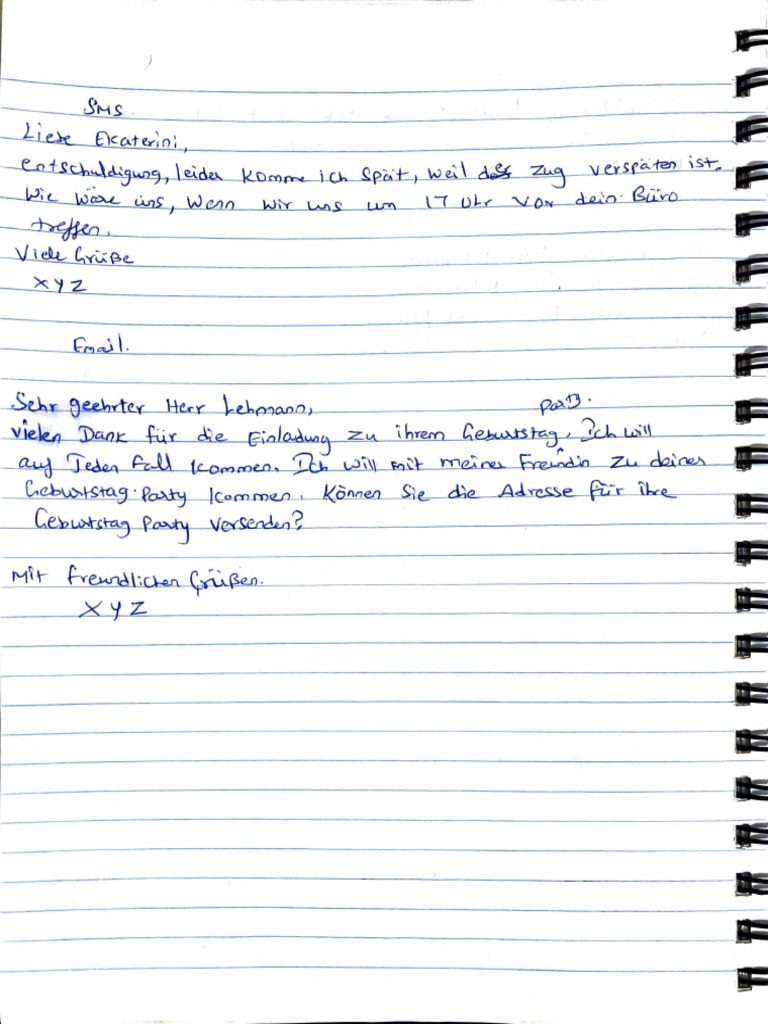 SMS
Liebe Ekaterini,
entschuldigung, leider komme ich spät, weil der Zug verspäten ist.
Wie wäre uns, wenn wir uns um 17 Uhr vor dein Büro
treffen.
Viele Grüße
XYZ
Email.
Sehr geehrter Herr Lehmann,
vielen Dank für die Einladung zu ihrem Geburtstag. Ich will
auf Jeden Fall kommen. Ich will mit meiner Freundin zu deiner
Geburtstag Party kommen. Können Sie die Adresse für ihre
Geburtstag Party versenden?
Mit freundlichen Grüßen.
XYZ